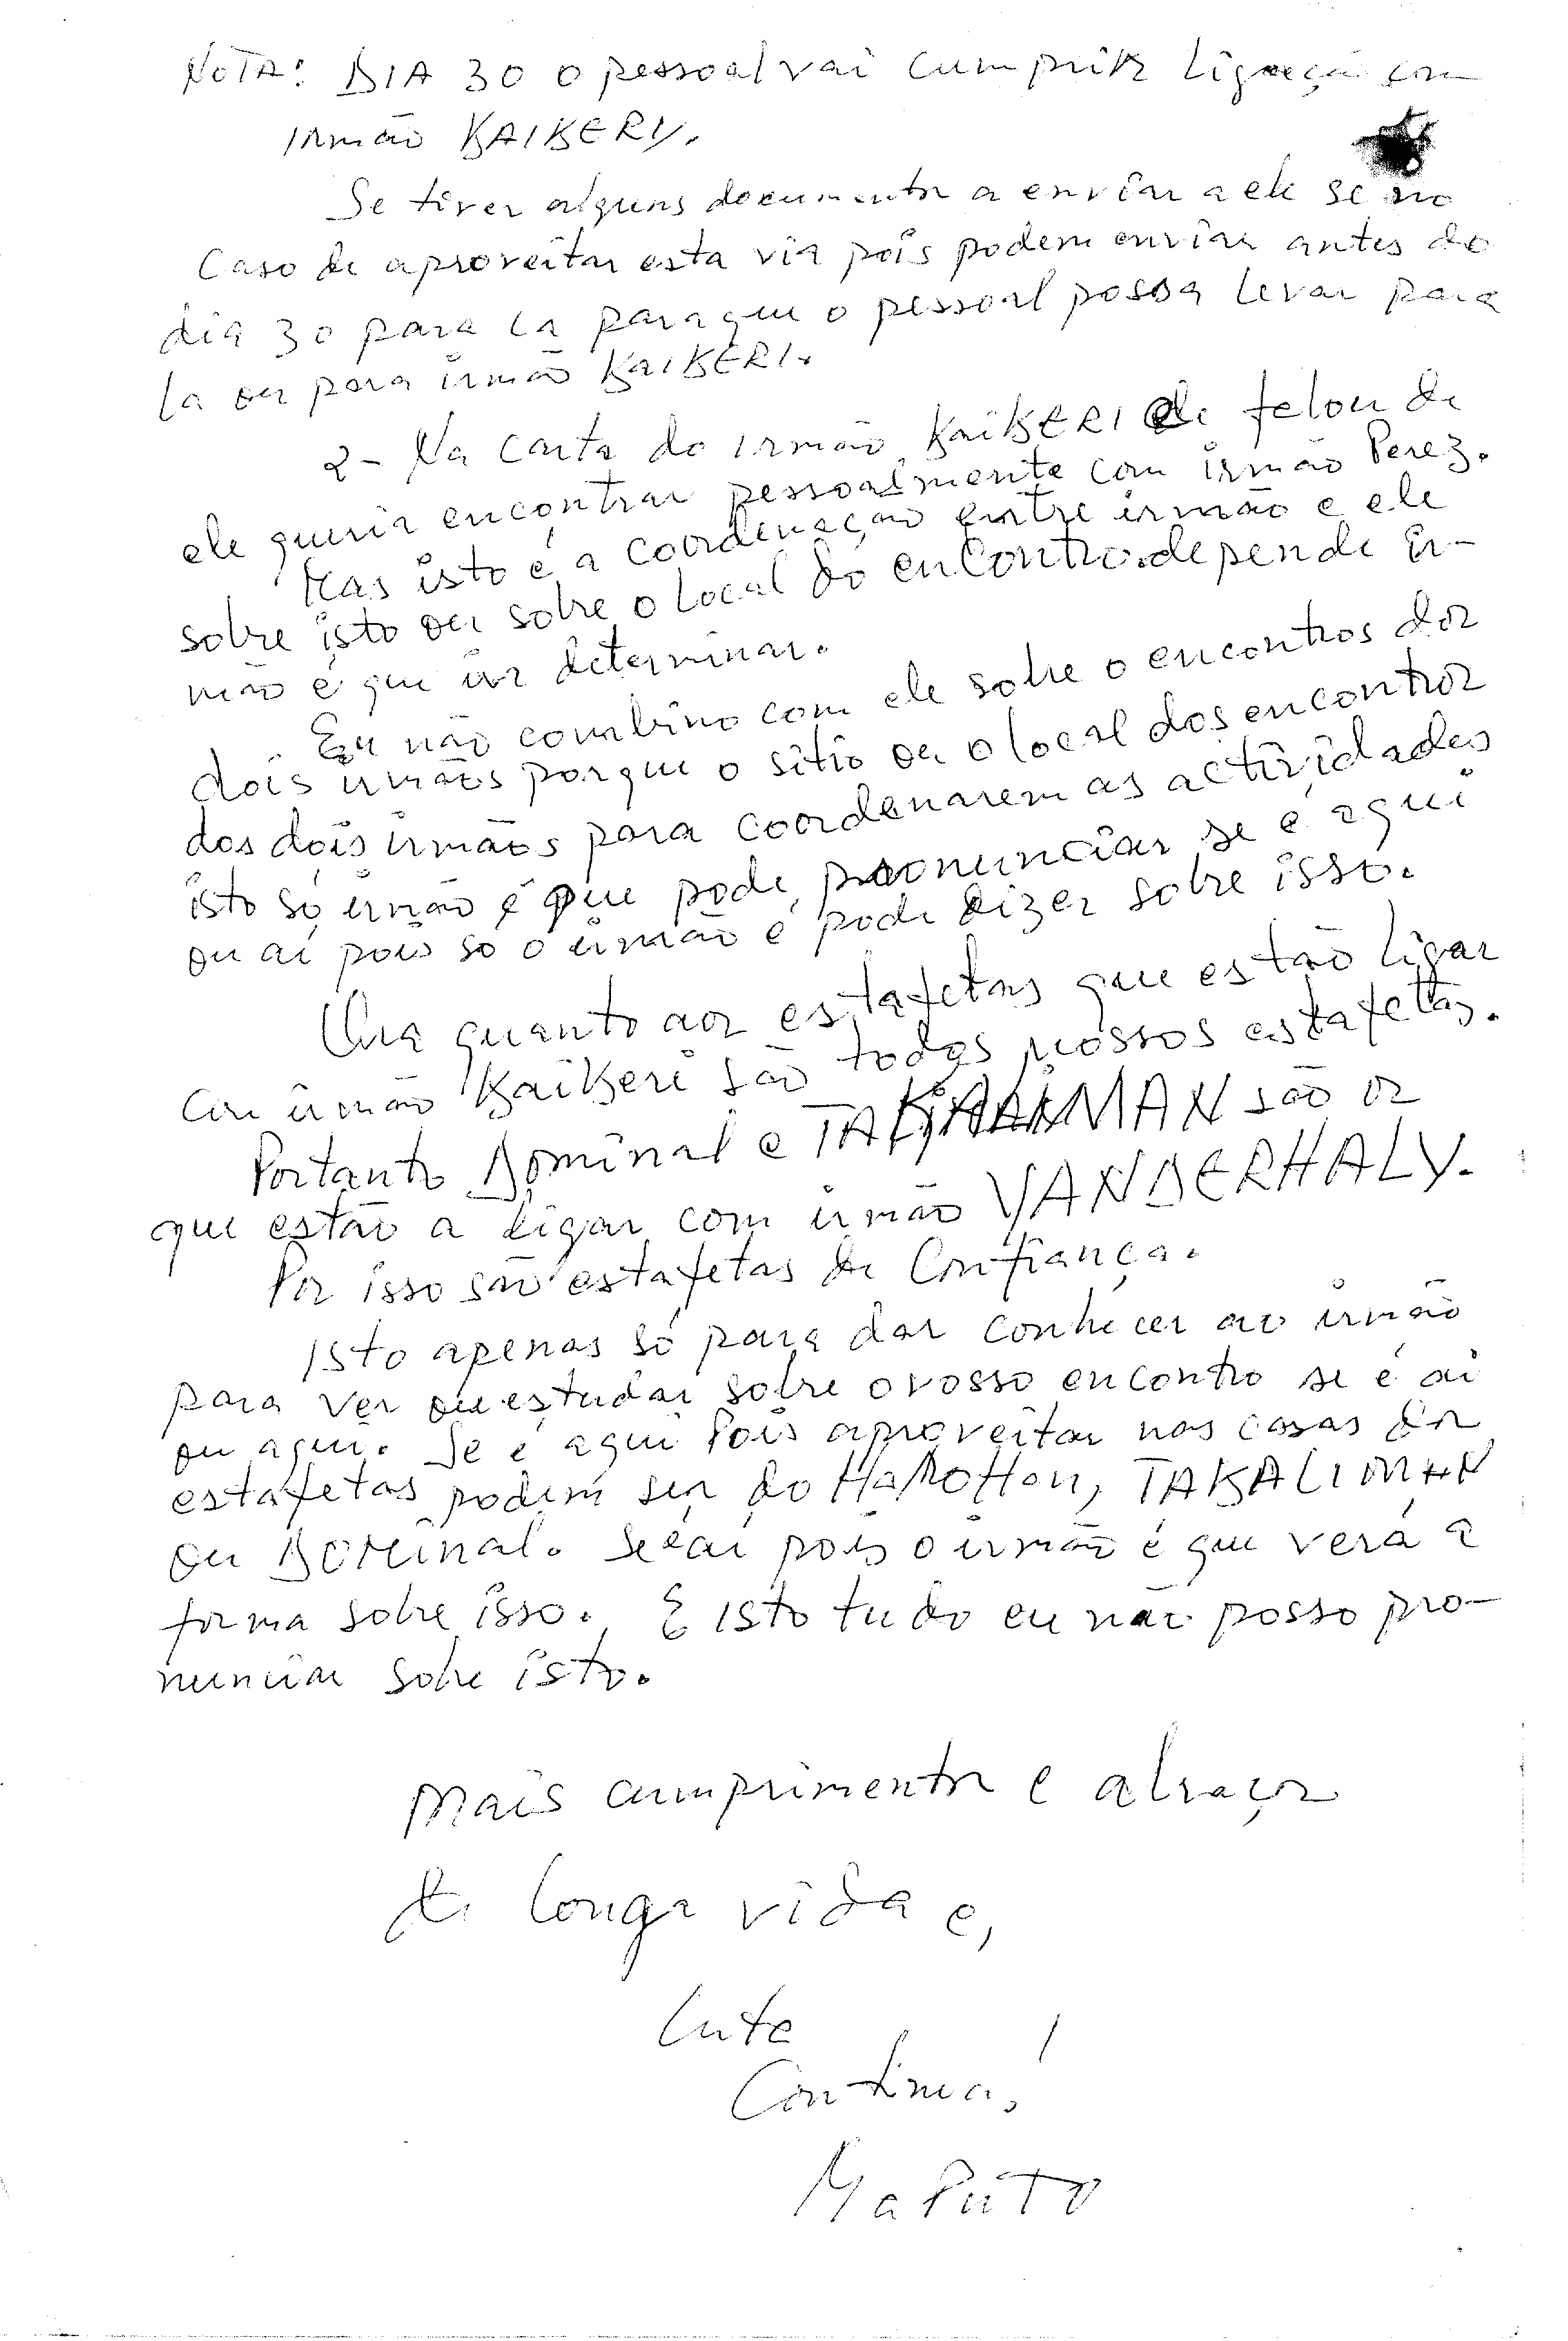 NOTA: DIA 30 o pessoal vai cumprir ligação com
irmão KAIKERI.
Se tiver alguns documentos a enviar a ele se no
Caso de aproveitar esta via pois podem enviar antes do
dia 30 para ca para que o pessoal possa levar para
la ou para irmão KAIKERI.
2- Na carta do irmão KaiKERI ele felou de
ele queria encontrar pessoalmente com irmão Perez.
Mas isto é a coordenação entre irmão e ele
sobre isto ou sobre o local do encontro. depende ir-
mão é que ira determinar.
Eu não combino com ele sobre o encontros dos
dois irmãos porque o sitio ou o local dos encontros
dos dois irmãos para coordenarem as actividades
isto só irmão é que pode pronunciar se é aqui
ou ai pois so o irmão é pode dizer sobre isso.
Ora quanto aos estafetas que estão ligar
com irmão KaiKeri são todos nossos estafetas.
Portanto Dominal e são os
que estão a ligar com irmão VANDERHALY.
Por isso são estafetas de Confiança.
Isto apenas só para dar conhecer ao irmão
para ver ou estudar sobre o vosso encontro se é ai
ou aqui. Se é aqui Pois aproveitar nas casas dos
estafetas podem ser do HaMoHou, TAKALIMAN
ou DOMinal. Se é ai pois o irmão é que verá a
forma sobre isso. E isto tudo eu não posso pro-
nunciar sobre isto.
Mais cumprimentos e abraços
de longa vida e,
Luta
Continua!
MaPuTo